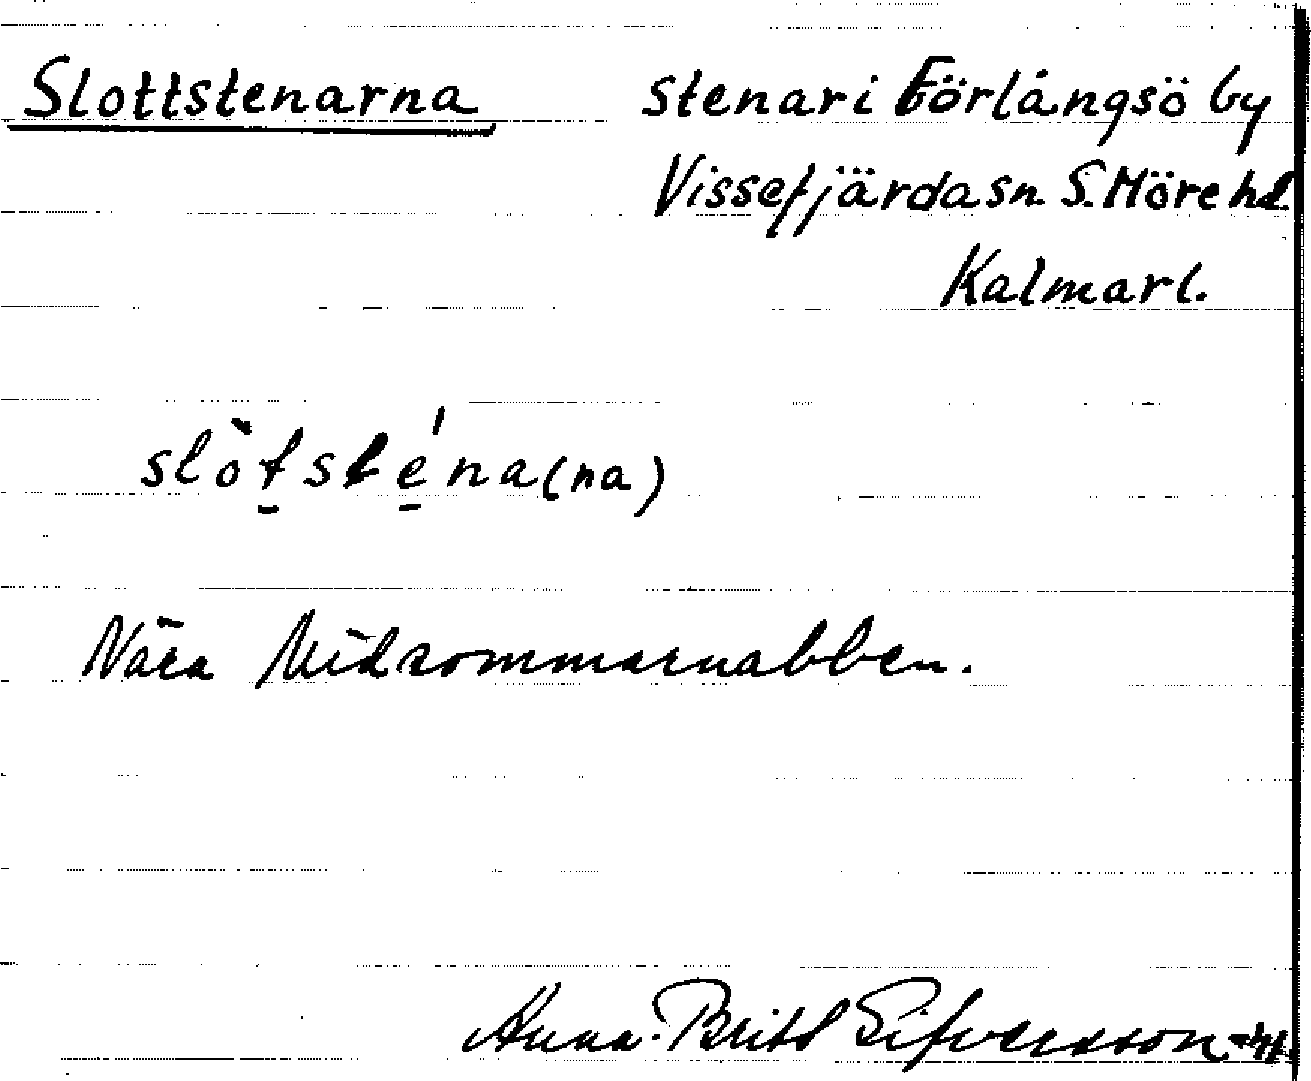 Slottstenarna stenar i Förlångsö by
Vissefjärda sn S. Möre hd.
Kalmar l.
slòtsténa(na)
Nära Midsommarnabben.
Anna-Britt Sifversson -71.